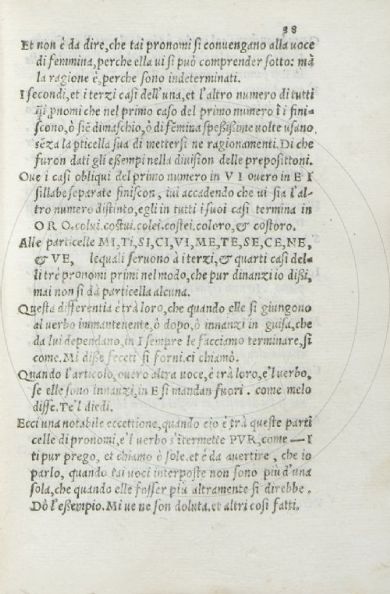 38
Et non è da dire, che tai pronomi si conuengano alla uoce
di femmina, perche ella ui si può comprender sotto: mà
la ragione è, perche sono indeterminati.
I secondi, et i terzi casi dell'una, et l'altro numero di tutti
q̃sti ꝓnomi che nel primo caso del primo numero ĩ i fini=
scono, ò siẽ di maschio, ò di fẽmina speßißime uolte usano
sẽza la ꝑticella sua di mettersi ne ragionamenti. Di che
furon dati gli eßempi nella diuision delle prepositioni.
Oue i casi obliqui del primo numero in V I ouero in E I
sillabe separate finiscon, iui accadendo che ui sia l'al=
tro numero distinto, egli in tutti i suoi casi termina in
O R O. colui. costui. colei. costei. coloro, & costoro.
Alle particelle MI, TI, SI, CI, VI, ME, TE, SE, CE, NE,
& VE, lequali seruono à i terzi, & quarti casi del=
li trè pronomi primi nel modo, che pur dinanzi io dißi,
mai non si dà particella alcuna.
Questa differentia è trà loro, che quando elle si giungono
al uerbo immantenente, ò dopo, ò innanzi in guisa, che
da lui dependano, in I sempre le facciamo terminare, sì
come. Mi diße feceti si forni. ci chiamò.
Quando l'articolo, ouero altra uoce, è trà loro, e'l uerbo,
se elle sono innanzi, in E si mandan fuori. come melo
disse. Te'l diedi.
Ecci una notabile eccettione, quando ciò è trà queste parti
celle di pronomi, e'l uerbo s'ĩtermette PVR, come — I
ti pur prego, et chiamo ò sole. et è da auertire, che io
parlo, quando tai uoci interposte non sono piu d'una
sola, che quando elle fosser più altramente si direbbe.
Dò l'eßempio. Mi ue ne son doluta, et altri così fatti.